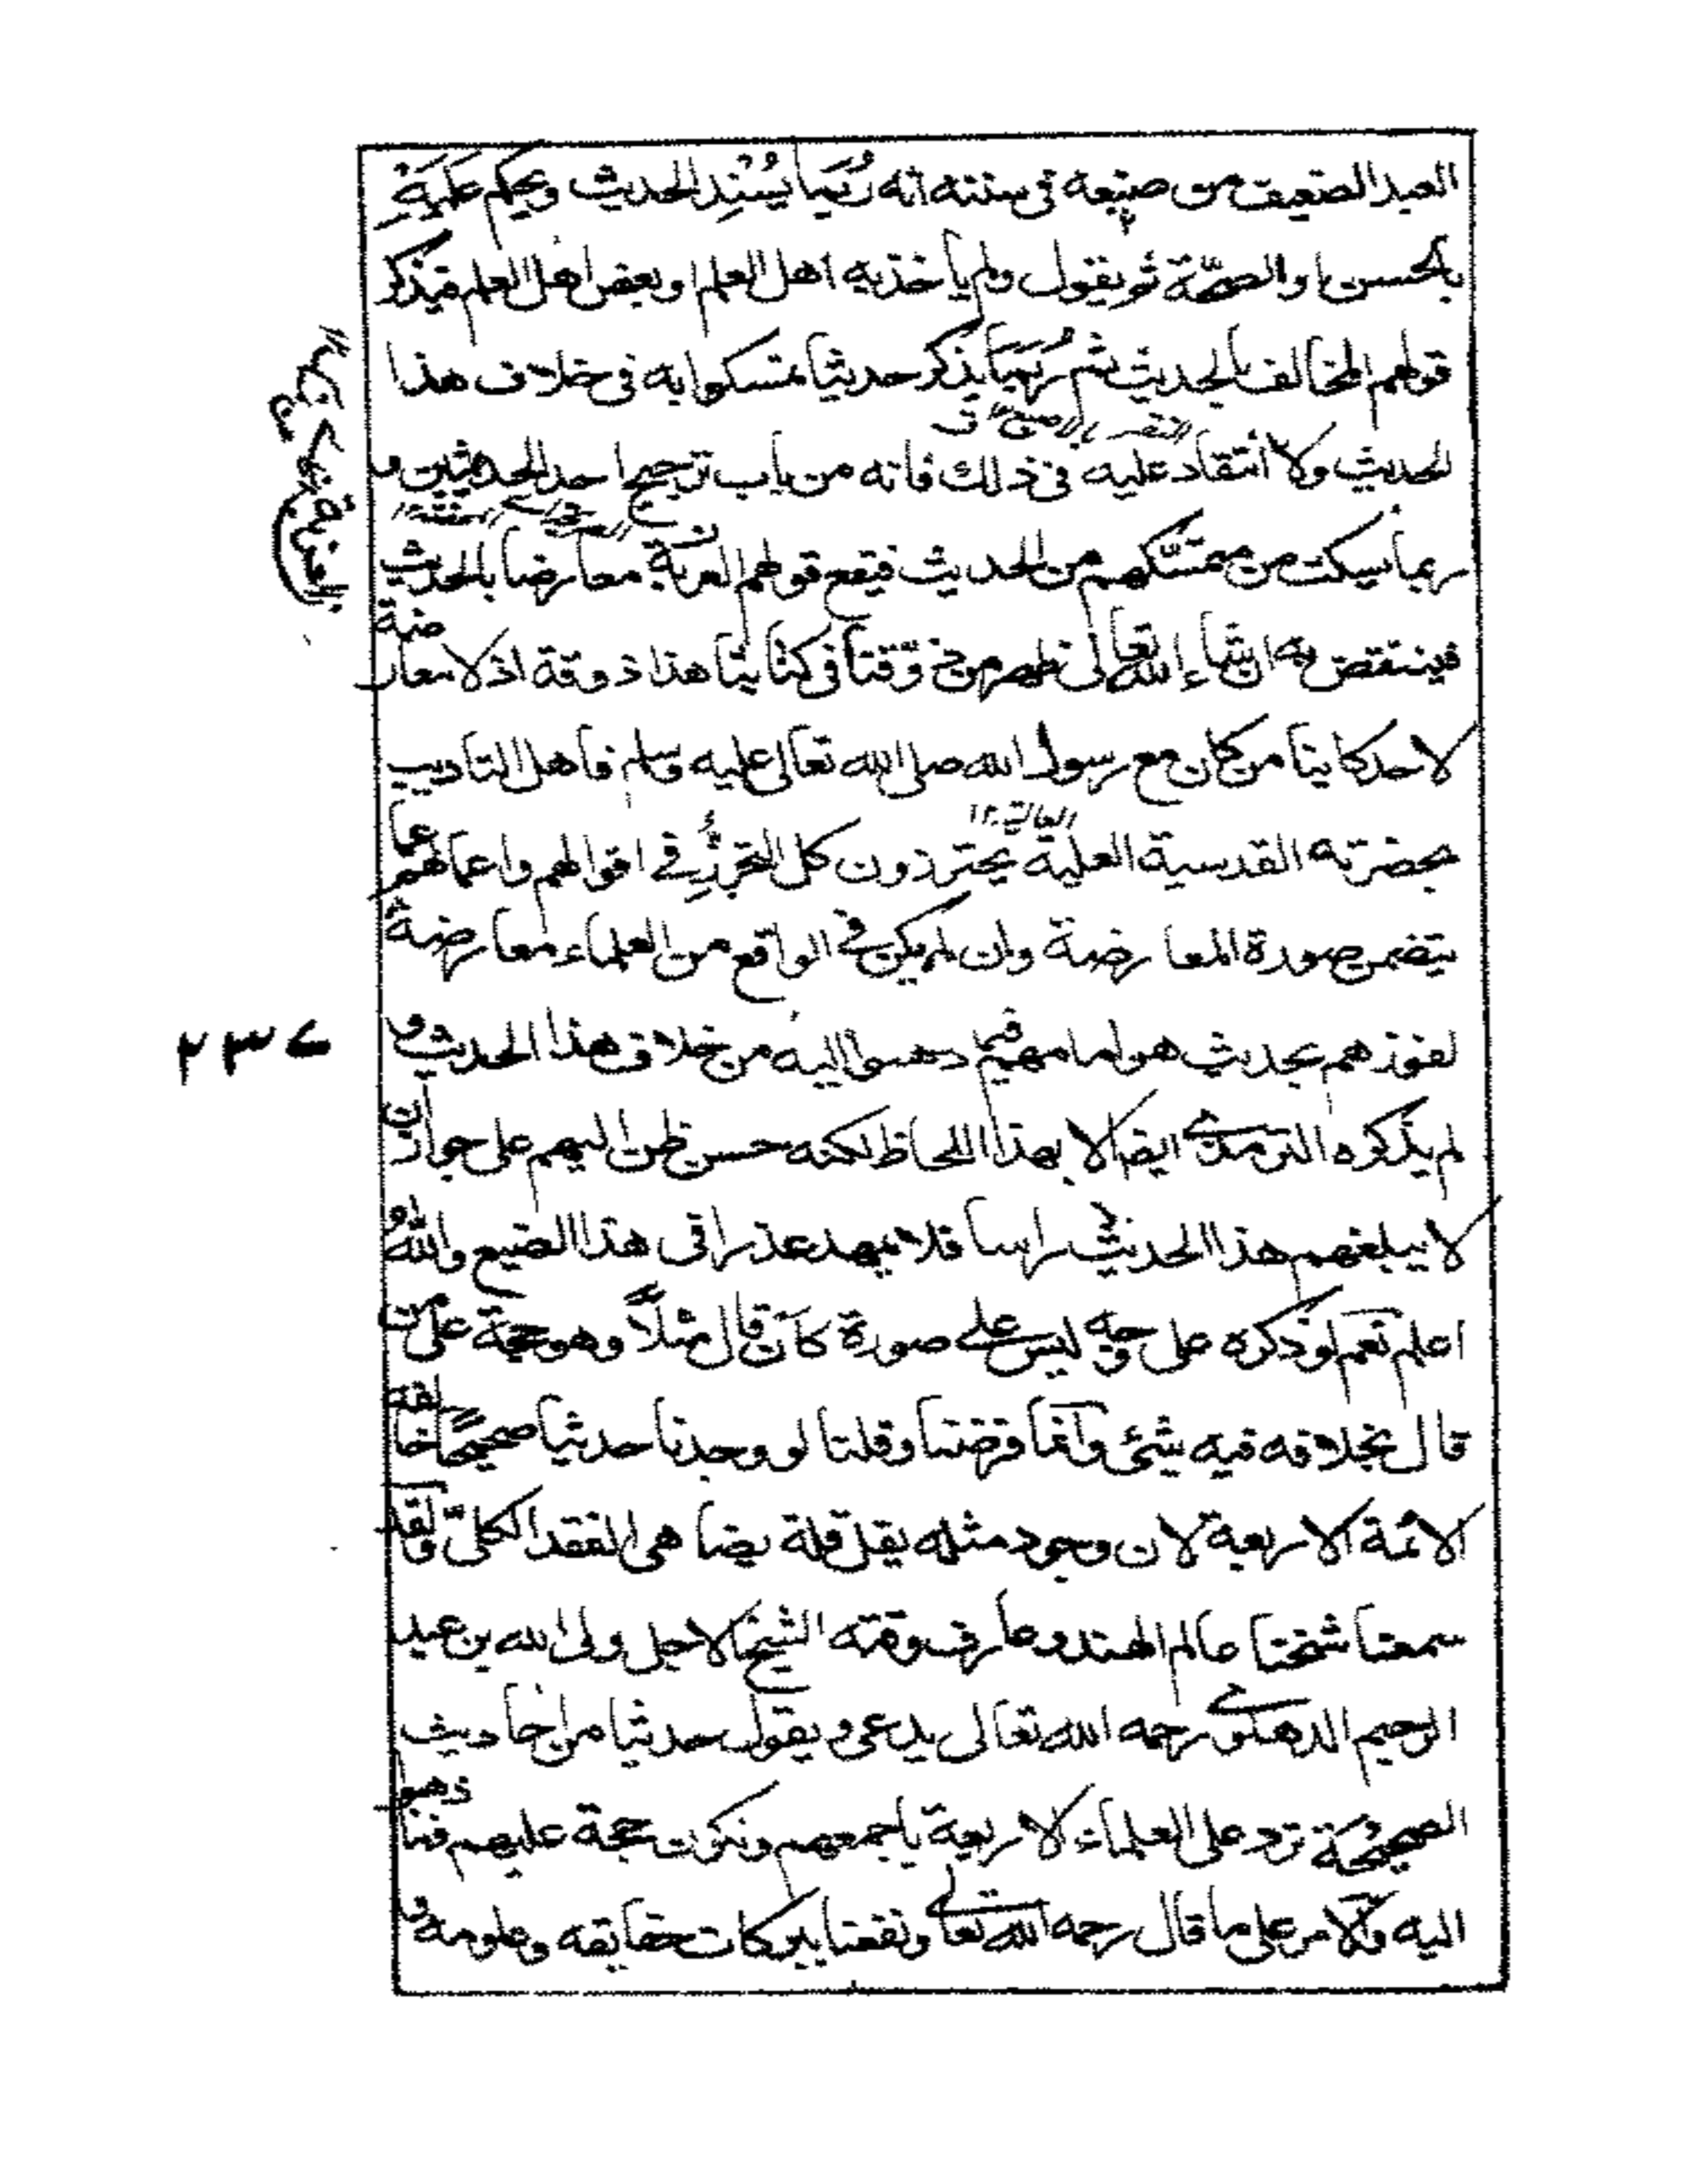 العبد الضعيف من صنيعه فى سننه انه رُبَما يُسْنِد الحديث ويحكم عَلَيهِ
بالحسن او الصحّة ثم يقول ولم ياخذ به اهل العلم او بعض اهل العلم فيذكر
قولهم المخالف بالحديث ثم رُبَمَا يذكر حديثا تمسكوا به فى خلاف هذا
الحديث ولا انتقاد عليه فى ذلك فانه من باب ترجيح احد الحديثين و
ربما يسكت من متمسّكهم من الحديث فيقع قولهم معارضا بالحديث
فينتقض به ان شاء الله تعالى فى كتابنا هذا ذوقة اذ لا معارضة
لاحد كاينا من كان مع رسول الله صلى الله تعالى عليه وسلم فاهل التاديب
بحضرته القدسية العلية يحترزون كل التحرز فى اقوالهم واعمالهم عما
يتضمن صورة المعارضة وان لم يكن فى الواقع من العلماء معارضة
لفوزهم بحديث هو امامهم فيما ذهبوا اليه من خلاف هذا الحديث و
لم يذكره الترمذى ايضا لا بهذا اللحاظ لكنه حسن ظن اليهم على جواز ان
لا يبلغهم هذا الحديث راسا فلا يمهد عذرا فى هذا الصنيع واللهُ
اعلم نعم لو ذكره على وجه ليس على صورة كان قال مثلاً وهو حجة على من
قال بخلافه فيه شئ وانما فرضنا وقلنا لو وجدنا حديثا صحيحًا خالفه
الائمة الاربعة لان وجود مثله يقل قلة يضاهى الفقد الكلىّ ولقد
سمعنا شيخنا عالم الهند وعارف وقته الشيخ الاجل ولى الله بن عبد
الرحيم الدهلوى رحمه الله تعالى يدعى ويقول حديثا من احاديث
الصحيحة ترد على العلماء الاربعة باجمعهم ونكون حجة عليهم فيما ذهبوا
اليه والامر على ما قال رحمه الله تعالى ونفعنا ببركات حقايقه وعلومه و
العالية ١٢
٢٣٧